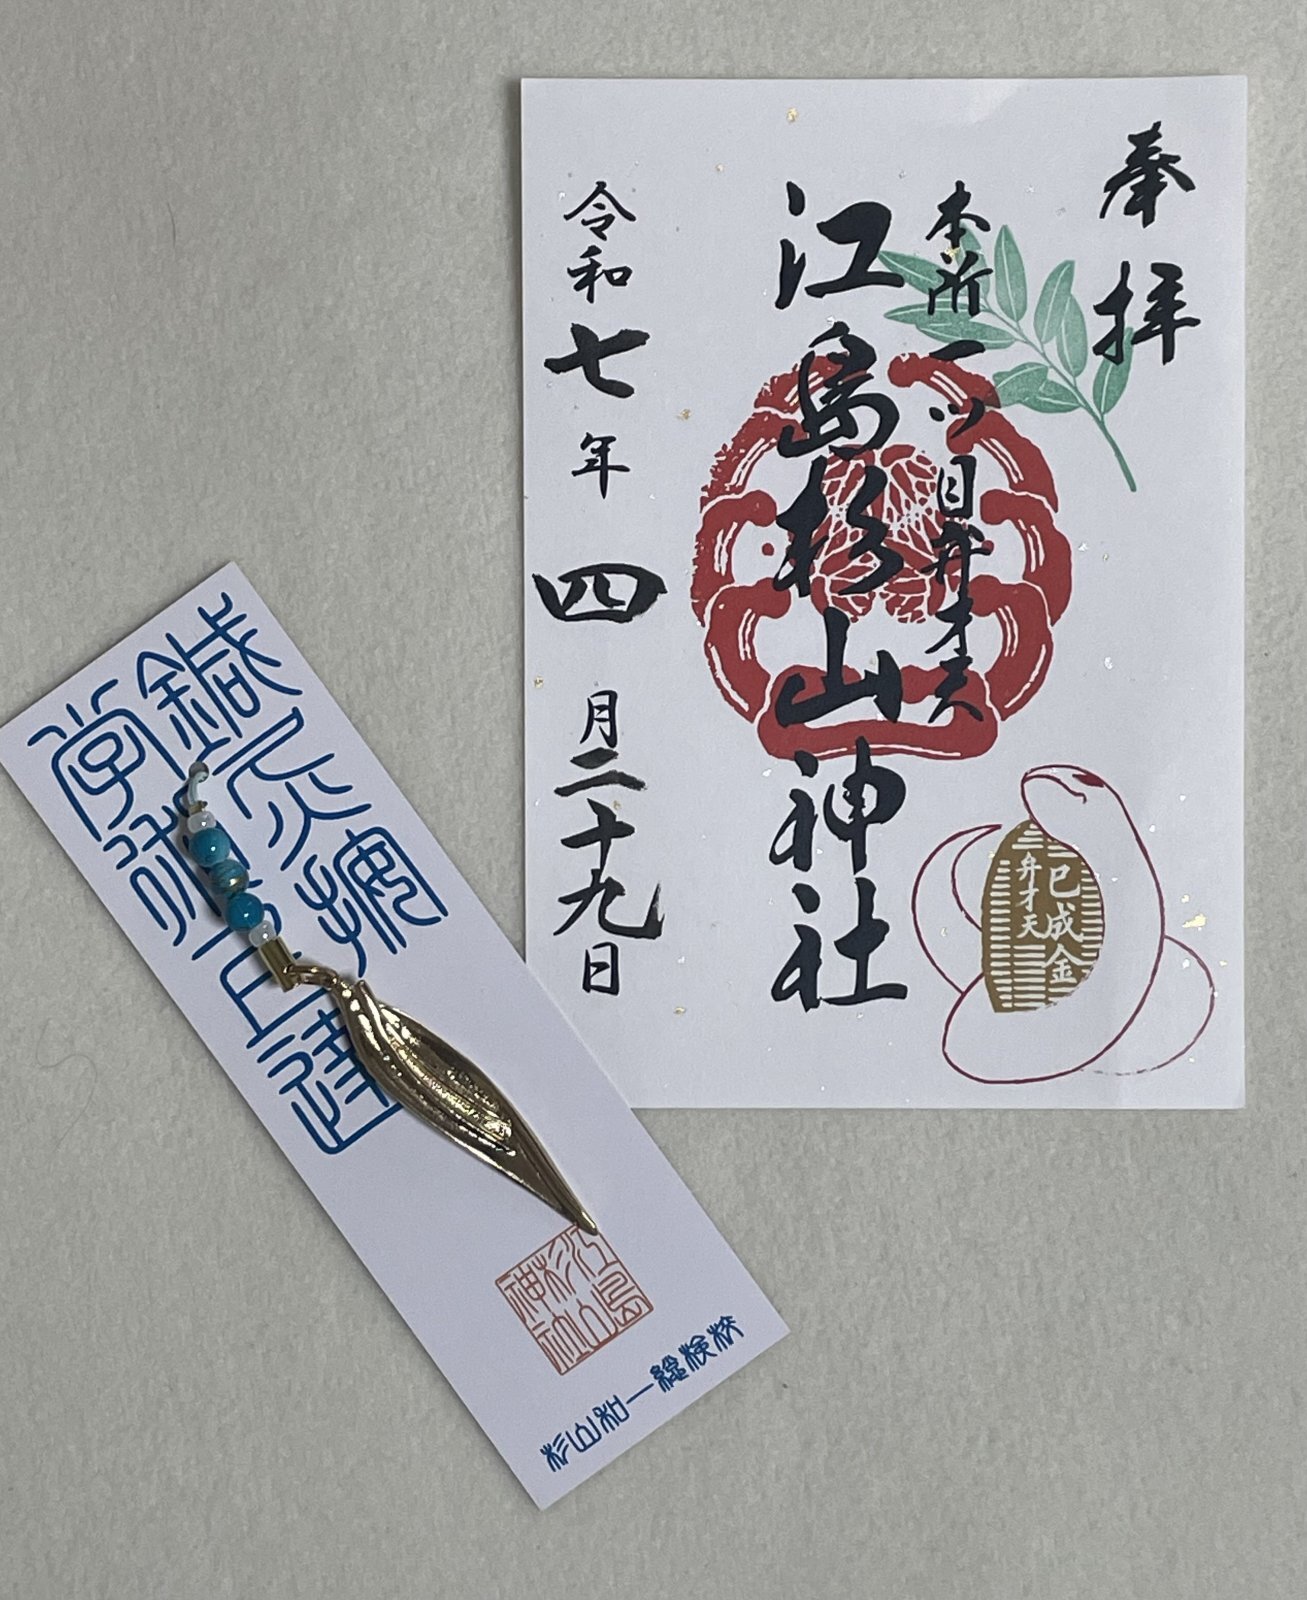 奉拝
本所一ツ目弁才天
江島杉山神社
令和七年四月二十九日
巳成金
弁才天
鍼灸按
学術上達
江島
杉山
神社
杉山和一総検校